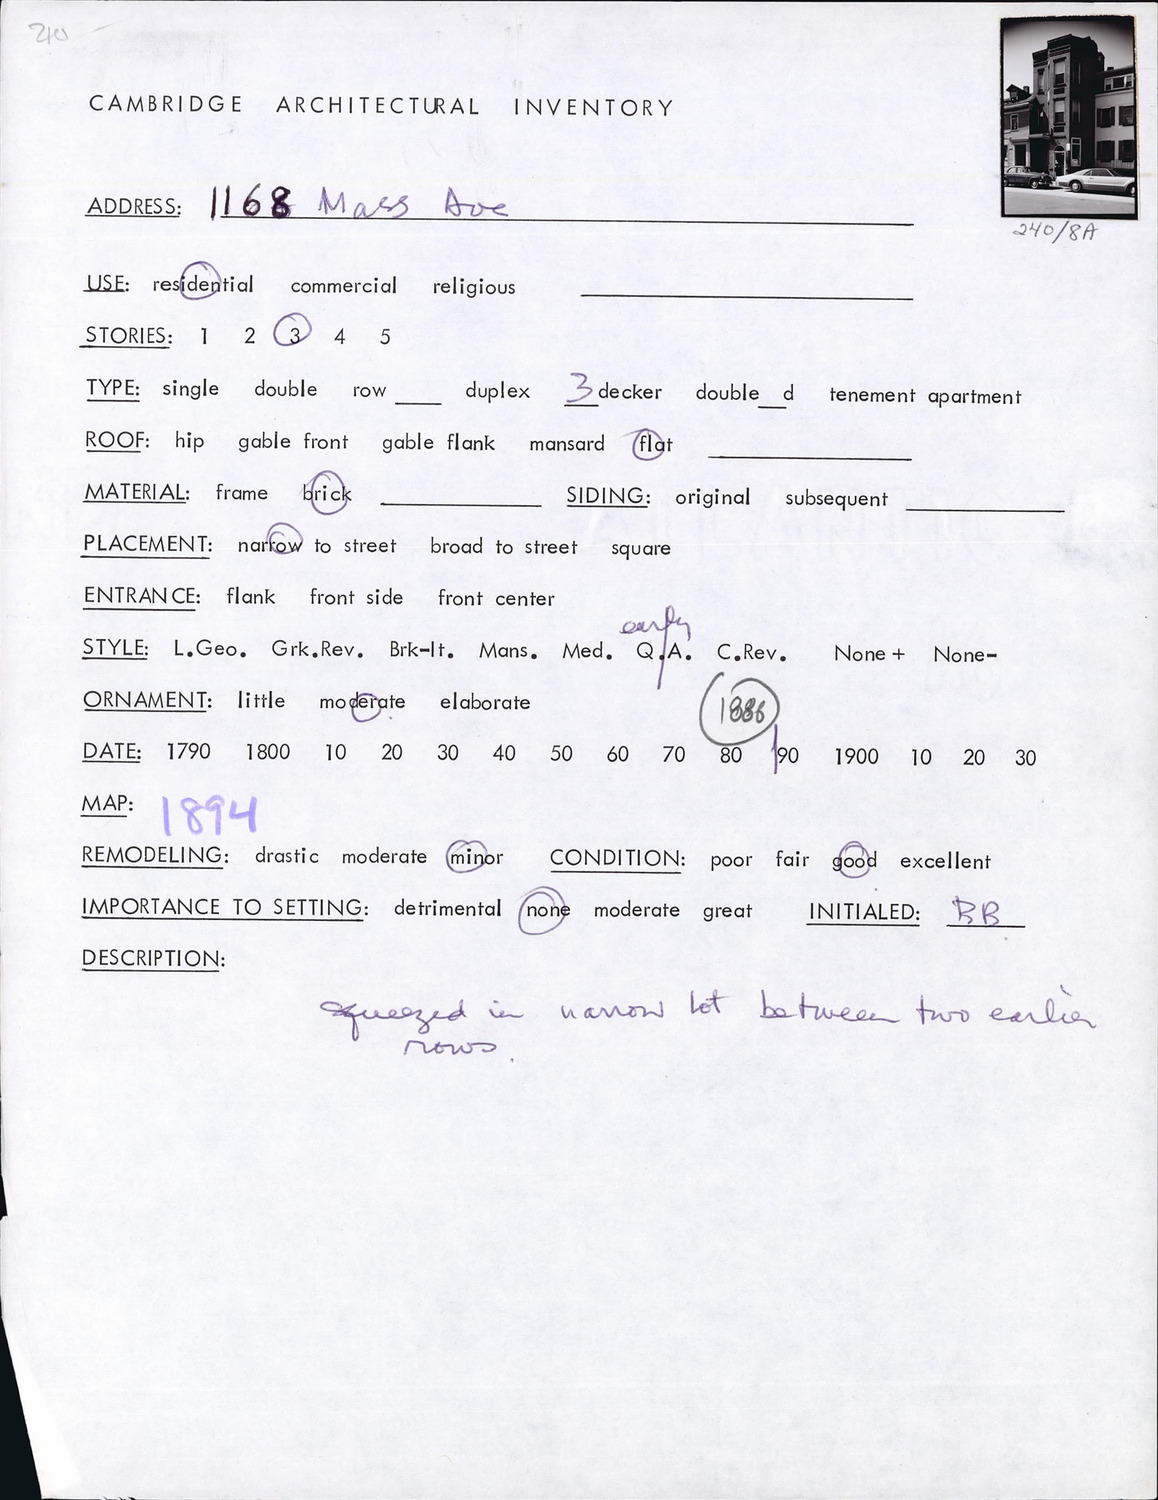 210
CAMBRIDGE ARCHITECTURAL INVENTORY
240/8A
ADDRESS: 1168 Mass Ave
USE: residential commercial religious
STORIES: 1 2 3 4 5
TYPE: single double row ____ duplex 3 decker double__d tenement apartment
ROOF: hip gable front gable flank mansard flat
MATERIAL: frame brick ____ SIDING: original subsequent ____
PLACEMENT: narrow to street broad to street square
ENTRANCE: flank front side front center
early
STYLE: L.Geo. Grk.Rev. Brk-It. Mans. Med. Q.A. C.Rev. None + None-
ORNAMENT: little moderate elaborate 1886
DATE: 1790 1800 10 20 30 40 50 60 70 80 90 1900 10 20 30
MAP: 1894
REMODELING: drastic moderate minor CONDITION: poor fair good excellent
IMPORTANCE TO SETTING: detrimental none moderate great INITIALED: BB
DESCRIPTION:
squeezed in narrow lot between two earlier
rows.